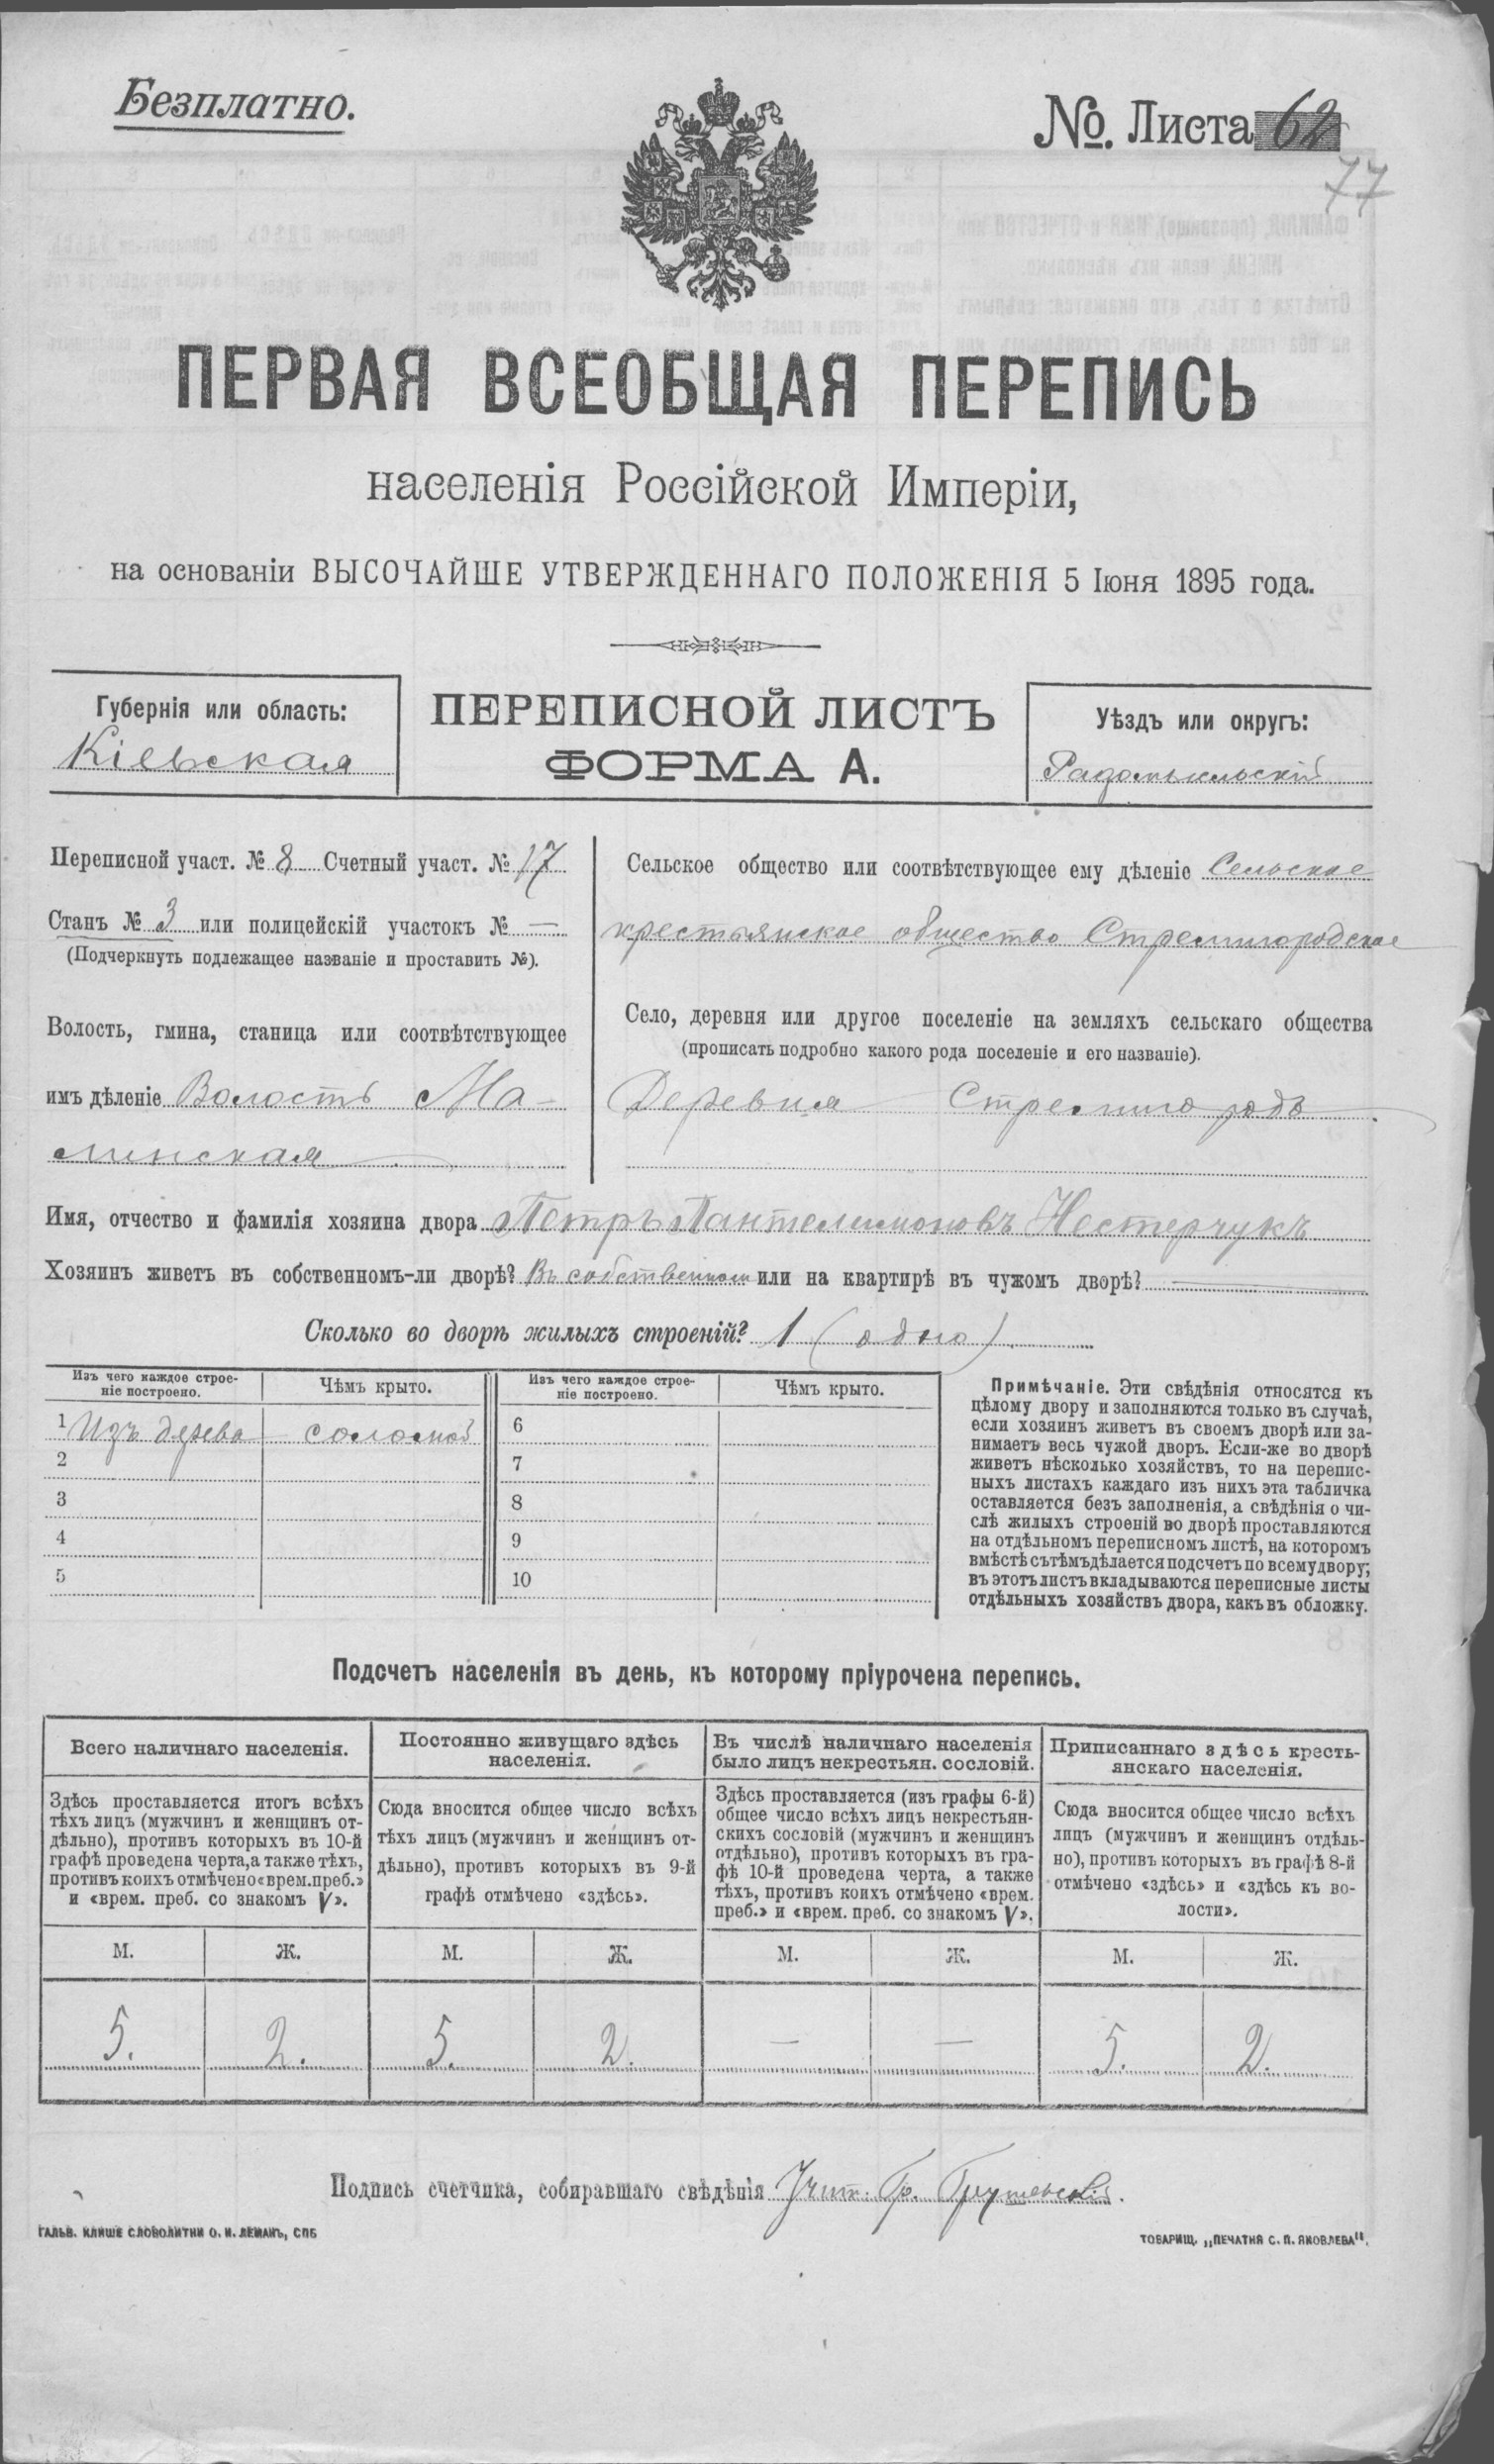 Безплатно.
№. Листа 62
77
ПЕРВАЯ ВСЕОБЩАЯ ПЕРЕПИСЬ
населенія Россійской Имперіи,
на основаніи ВЫСОЧАЙШЕ УТВЕРЖДЕННАГО ПОЛОЖЕНІЯ 5 Іюня 1895 года.
Губернія или область:
Кіевская
ПЕРЕПИСНОЙ ЛИСТЪ
ФОРМА А.
Уѣздъ или округъ:
Радомысльскій
Переписной участ. № 8 Счетный участ. № 17
Станъ № 3 или полицейскій участокъ № —
(Подчеркнуть подлежащее названіе и проставить №).
Волость, гмина, станица или соотвѣтствующее
имъ дѣленіе Волость Ма-
линская
Сельское общество или соотвѣтствующее ему дѣленіе Сельское
крестьянское общество Стремигородское
Село, деревня или другое поселеніе на земляхъ сельскаго общества
(прописать подробно какого рода поселеніе и его названіе).
Деревня Стремигородъ
Имя, отчество и фамилія хозяина двора Петръ Пантелимоновъ Нестерчукъ
Хозяинъ живетъ въ собственномъ-ли дворѣ? Въ собственном или на квартирѣ въ чужомъ дворѣ? —
Сколько во дворѣ жилыхъ строеній? 1 (одно)
Изъ чего каждое строе-
ніе построено.
Чѣмъ крыто.
1 Изъ дерева соломой
2
3
4
5
Изъ чего каждое строе-
ніе построено.
Чѣмъ крыто.
6
7
8
9
10
Примѣчаніе. Эти свѣдѣнія относятся къ
цѣлому двору и заполняются только въ случаѣ,
если хозяинъ живетъ въ своемъ дворѣ или за-
нимаетъ весь чужой дворъ. Если-же во дворѣ
живетъ нѣсколько хозяйствъ, то на перепис-
ныхъ листахъ каждаго изъ нихъ эта табличка
оставляется безъ заполненія, а свѣдѣнія о чи-
слѣ жилыхъ строеній во дворѣ проставляются
на отдѣльномъ переписномъ листѣ, на которомъ
вмѣстѣ съ тѣмъ дѣлается подсчетъ по всему двору;
въ этотъ листъ вкладываются переписные листы
отдѣльныхъ хозяйствъ двора, какъ въ обложку.
Подсчетъ населенія въ день, къ которому пріурочена перепись.
Всего наличнаго населенія.
Здѣсь проставляется итогъ всѣхъ
тѣхъ лицъ (мужчинъ и женщинъ от-
дѣльно), противъ которыхъ въ 10-й
графѣ проведена черта, а также тѣхъ,
противъ коихъ отмѣчено «врем. преб.»
и «врем. преб. со знакомъ V».
М. Ж.
5. 2.
Постоянно живущаго здѣсь
населенія.
Сюда вносится общее число всѣхъ
тѣхъ лицъ (мужчинъ и женщинъ от-
дѣльно), противъ которыхъ въ 9-й
графѣ отмѣчено «здѣсь».
М. Ж.
5. 2.
Въ числѣ наличнаго населенія
было лицъ некрестьян. сословій.
Здѣсь проставляется (изъ графы 6-й)
общее число всѣхъ лицъ некрестьян-
скихъ сословій (мужчинъ и женщинъ
отдѣльно), противъ которыхъ въ гра-
фѣ 10-й проведена черта, а также
тѣхъ, противъ коихъ отмѣчено «врем.
преб.» и «врем. преб. со знакомъ V».
М. Ж.
— —
Приписаннаго здѣсь кресть-
янскаго населенія.
Сюда вносится общее число всѣхъ
лицъ (мужчинъ и женщинъ отдѣль-
но), противъ которыхъ въ графѣ 8-й
отмѣчено «здѣсь» и «здѣсь къ во-
лости».
М. Ж.
5. 2.
Подпись счетчика, собиравшаго свѣдѣнія Учит. Гр.
ГАЛЬВ. КЛИШЕ СЛОВОЛИТНИ О. И. ЛЕМАНЪ, СПБ
ТОВАРИЩ. „ПЕЧАТНЯ С. П. ЯКОВЛЕВА".